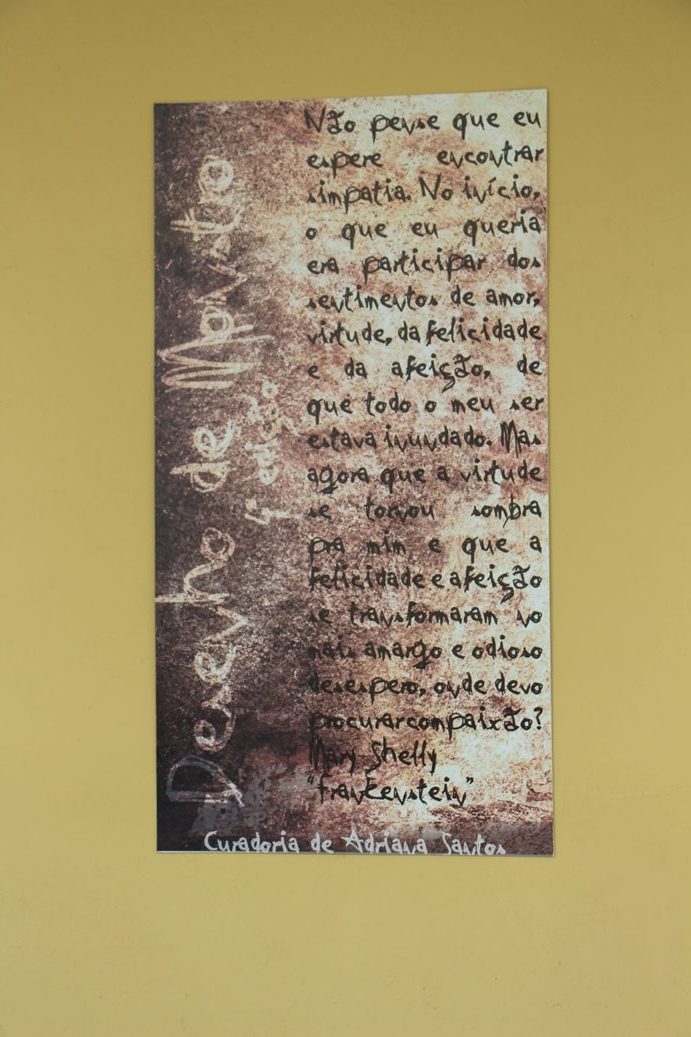 Desenho de Monstro
4ª edição
Não pense que eu
espere encontrar
simpatia. No início,
o que eu queria
era participar dos
sentimentos de amor,
virtude, da felicidade
e da afeição, de
que todo o meu ser
estava inundado. Mas
agora que a virtude
se tornou sombra
pra mim e que a
felicidade e a feição
se transformaram no
mais amargo e odioso
desespero, onde devo
procurar compaixão?
Mary Shelly
"frankenstein"
Curadoria de Adriana Santos